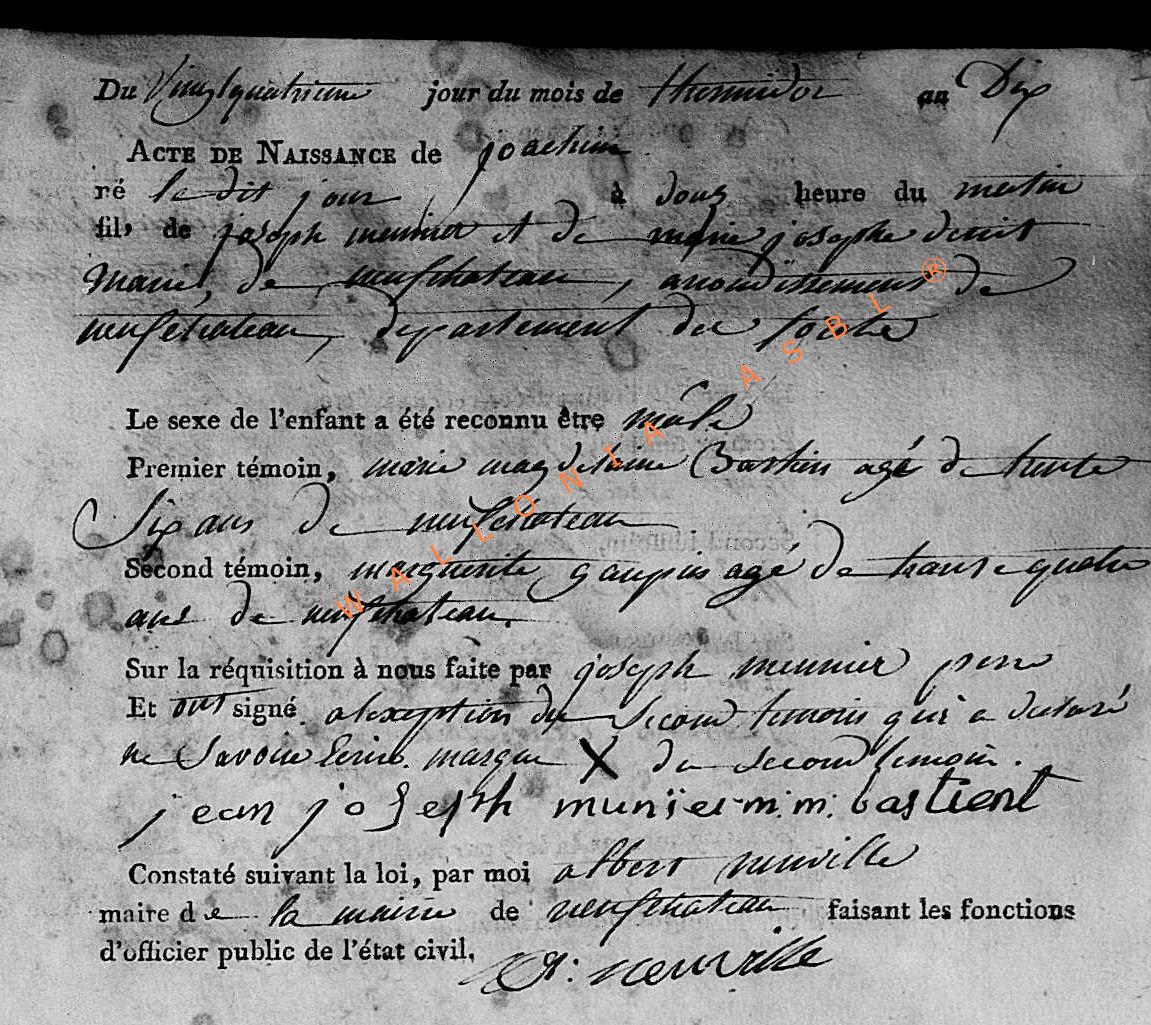 Du Vingtquatrieme jour du mois de thermidor an Dix
ACTE DE NAISSANCE de joachim
né le dit jour à douz heure du matin
fils de joseph meunier et de marie josephe
Marié, de neufchateau, arrondissement de
neufchateau, departement des forêts
Le sexe de l'enfant a été reconnu être mâle
Premier témoin, marie magdelaine Bastien agé de trente
Six ans de neufchateau
Second témoin, marguerite agé de trante quatre
ans de neufchateau.
Sur la réquisition à nous faite par joseph meunier pere
Et ont signé a lexception du Second temoin qui a declaré
ne Savoir Ecrire. marque X du second temoin.
jean joseph munier m: m: bastient
Constaté suivant la loi, par moi albert neuville
maire de la mairie de neufchateau faisant les fonctions
d'officier public de l'état civil.
A: neuville
WALLONIA ASBL ®